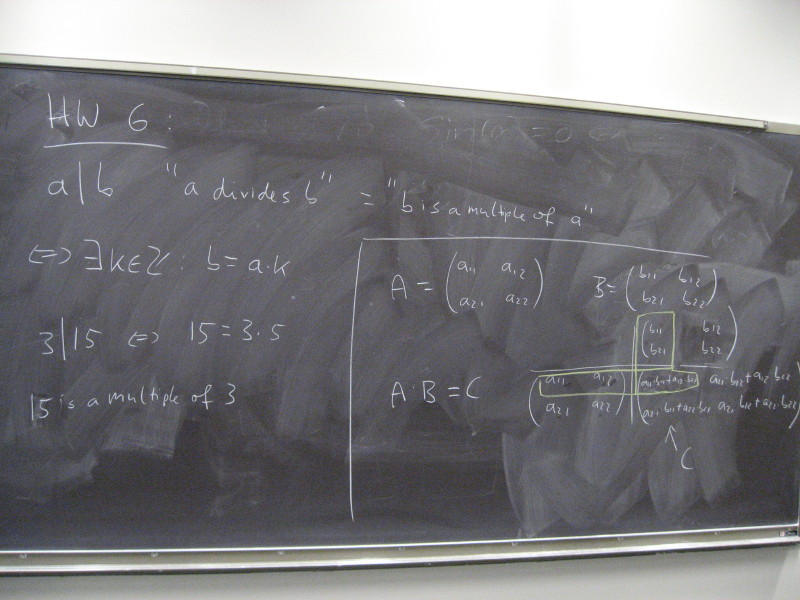 HW 6:
Sin(x) = 0
a|b "a divides b" = "b is a multiple of a"
⇔ ∃k∈ℤ: b = a·k
3|15 ⇔ 15 = 3·5
15 is a multiple of 3
A = (a11 a12
a21 a22)
B = (b11 b12
b21 b22)
(b11 b12
b21 b22)
A·B = C
(a11 a12) (a11·b11+a12·b21 a11·b12+a12·b22)
(a21 a22) (a21·b11+a22·b21 a21·b12+a22·b22)
C